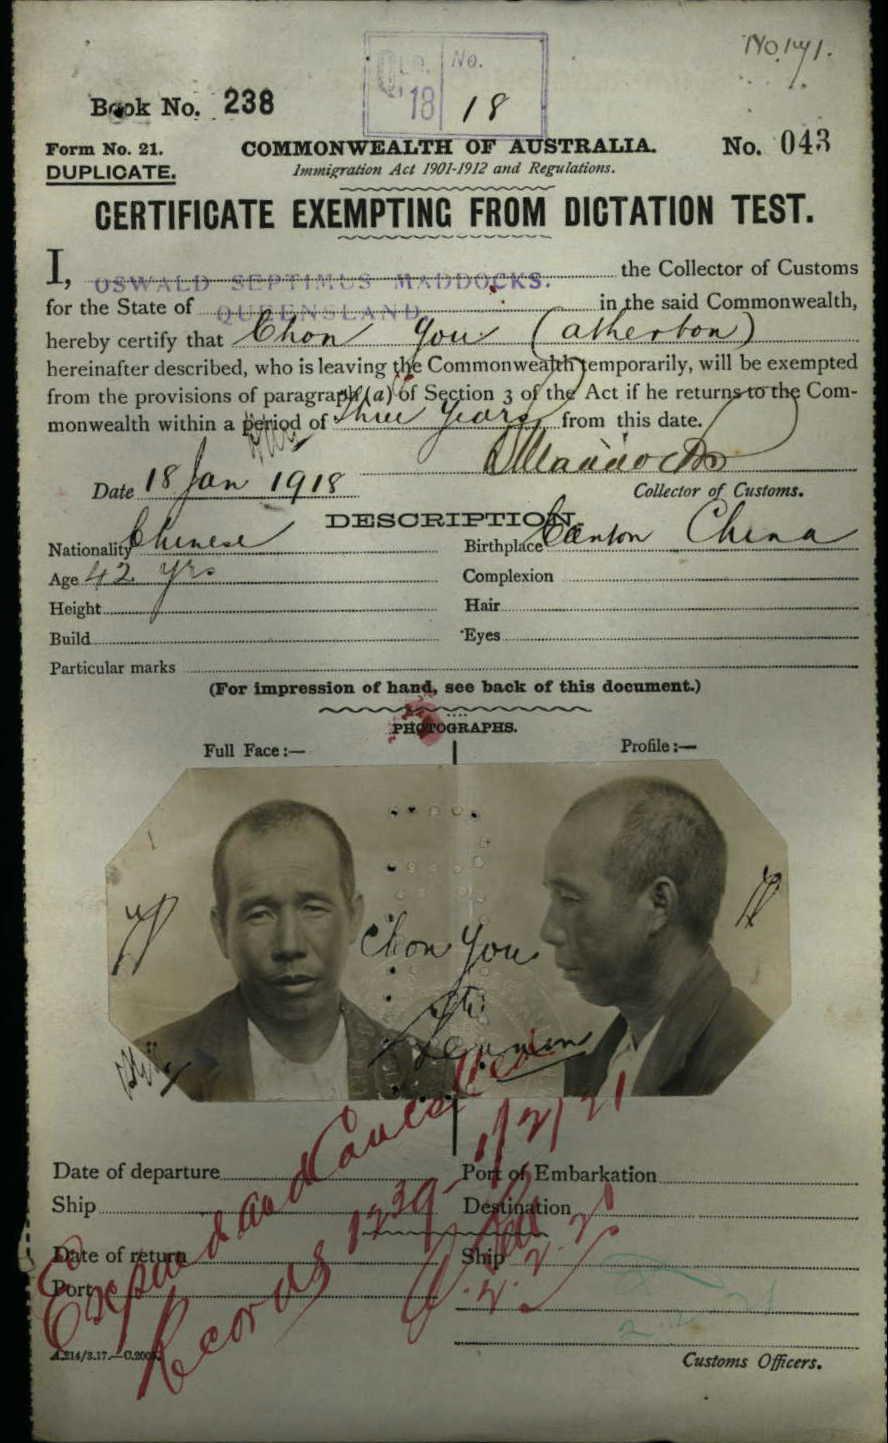 No. 141.
No.
18 18
Book No. 238
Form No. 21.
COMMONWEALTH OF AUSTRALIA.
No. 043
DUPLICATE.
Immigration Act 1901-1912 and Regulations.
CERTIFICATE EXEMPTING FROM DICTATION TEST.
I, OSWALD SEPTIMUS MADDOCKS. the Collector of Customs
for the State of QUEENSLAND in the said Commonwealth,
hereby certify that Chon You (Atherton)
hereinafter described, who is leaving the Commonwealth temporarily, will be exempted
from the provisions of paragraph (a) of Section 3 of the Act if he returns to the Com-
monwealth within a period of three years from this date.
Maddocks
Date 18 Jan 1918
Collector of Customs.
DESCRIPTION.
Nationality Chinese Birthplace Canton China
Age 42 yrs Complexion
Height Hair
Build Eyes
Particular marks
(For impression of hand, see back of this document.)
PHOTOGRAPHS.
Full Face:— Profile:—
Chon You
Date of departure Port of Embarkation
Ship Destination
Date of return Ship
Port
Expired and Cancelled
Records 1239
Customs Officers.